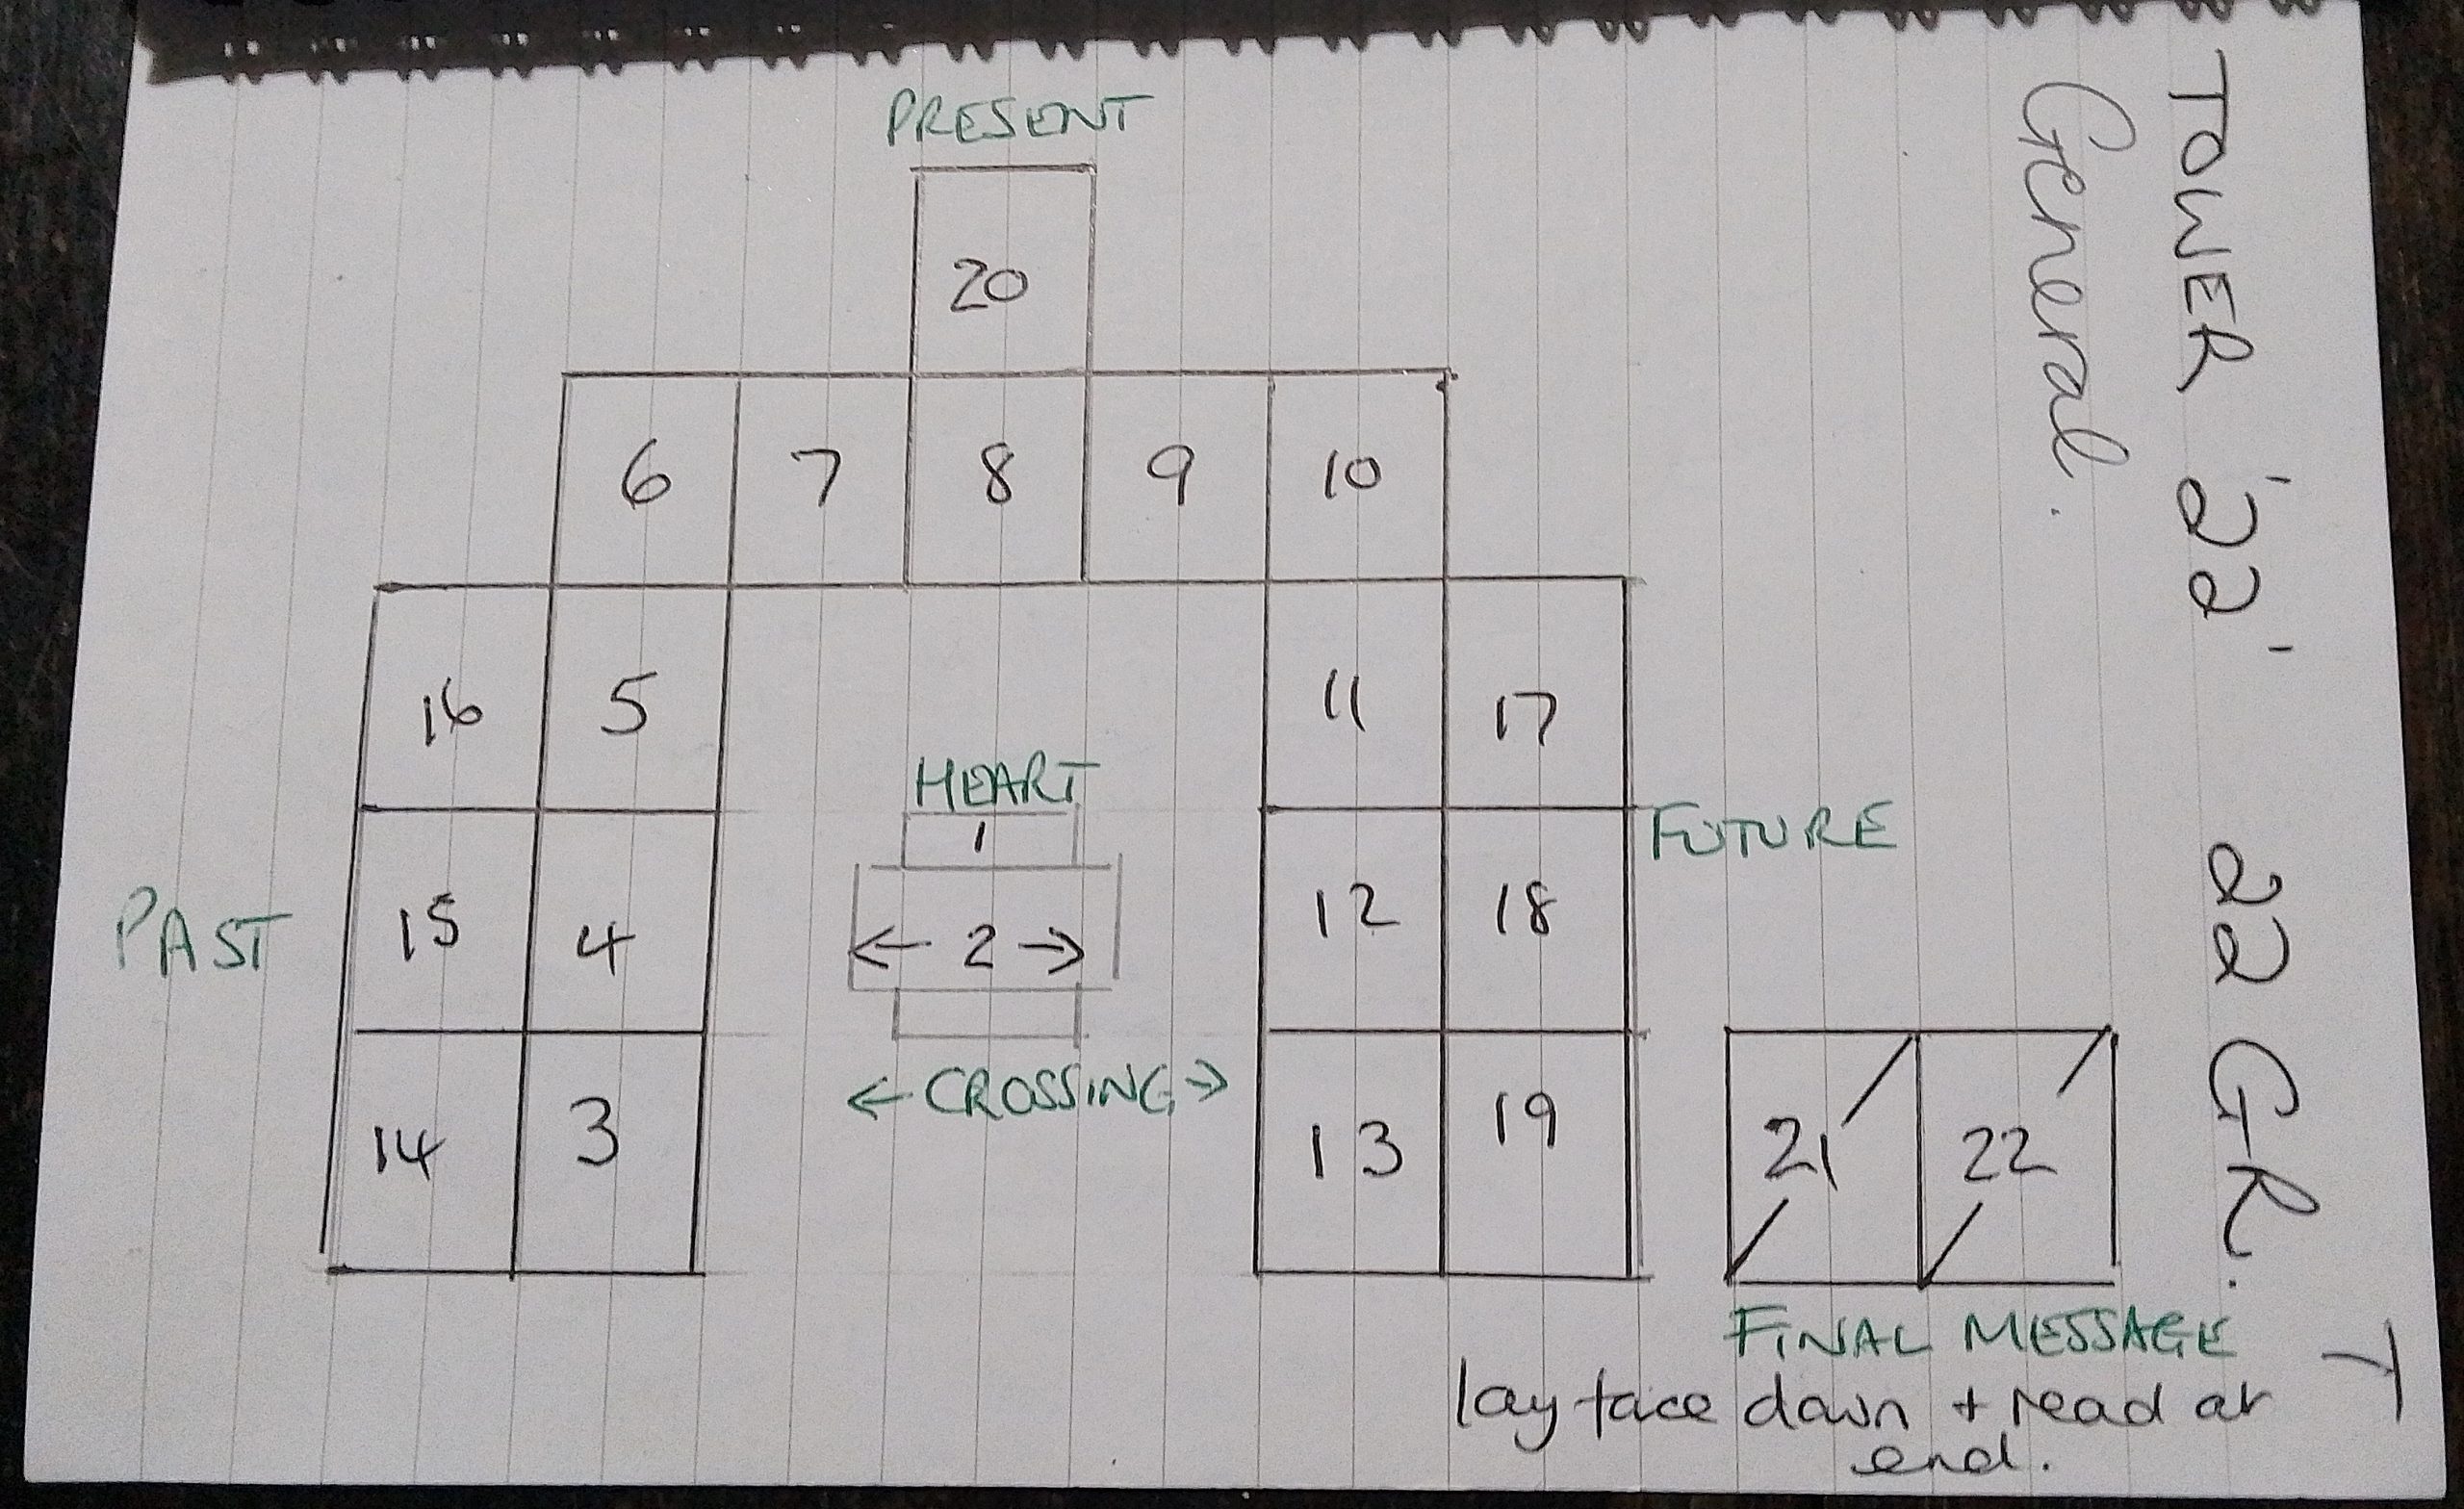 PRESENT
20
6 7 8 9 10
16 5 11 17
HEART
1
FUTURE
15 4 ← 2 → 12 18
PAST
← CROSSING →
14 3 13 19 21 22
FINAL MESSAGE
lay face down + read at
end.
TOWER '22' 22 G.R.
General.
T